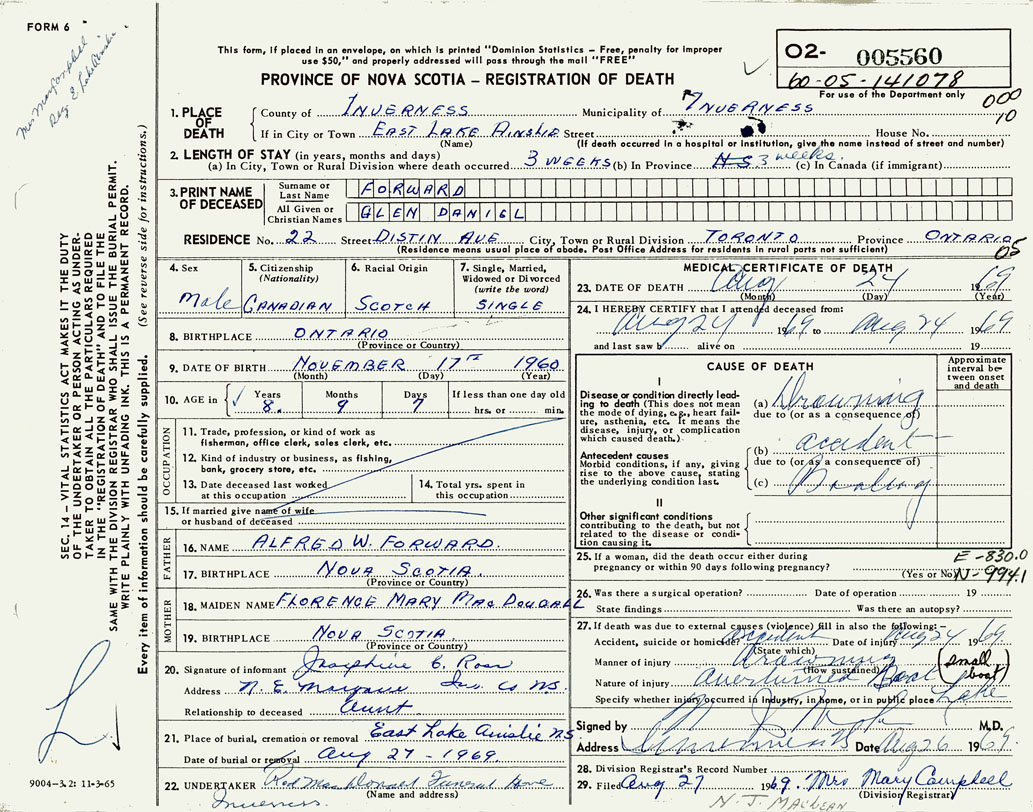 FORM 6
Mrs Mary Campbell
Reg E. Lake Ainslie
This form, if placed in an envelope, on which is printed "Dominion Statistics – Free, penalty for improper
use $50," and properly addressed will pass through the mail "FREE"
PROVINCE OF NOVA SCOTIA – REGISTRATION OF DEATH
02- 005560
60-05-141078
For use of the Department only
000
10
1. PLACE OF DEATH
County of INVERNESS Municipality of INVERNESS
If in City or Town EAST LAKE AINSLIE Street House No.
(Name) (If death occurred in a hospital or institution, give the name instead of street and number)
2. LENGTH OF STAY (in years, months and days)
(a) In City, Town or Rural Division where death occurred 3 WEEKS (b) In Province NS 3 weeks. (c) In Canada (if immigrant)
3. PRINT NAME OF DECEASED
Surname or Last Name FORWARD
All Given or Christian Names GLEN DANIEL
RESIDENCE No. 22 Street DISTIN AVE City, Town or Rural Division TORONTO Province ONTARIO
(Residence means usual place of abode. Post Office Address for residents in rural parts not sufficient)
05
4. Sex
Male
5. Citizenship (Nationality)
CANADIAN
6. Racial Origin
SCOTCH
7. Single, Married, Widowed or Divorced (write the word)
SINGLE
8. BIRTHPLACE ONTARIO
(Province or Country)
9. DATE OF BIRTH NOVEMBER 17TH 1960
(Month) (Day) (Year)
10. AGE in Years Months Days If less than one day old
8. 9 7 hrs. or min.
OCCUPATION
11. Trade, profession, or kind of work as
fisherman, office clerk, sales clerk, etc.
12. Kind of industry or business, as fishing,
bank, grocery store, etc.
13. Date deceased last worked
at this occupation
14. Total yrs. spent in
this occupation
15. If married give name of wife
or husband of deceased
FATHER
16. NAME ALFRED W. FORWARD.
17. BIRTHPLACE NOVA SCOTIA.
(Province or Country)
MOTHER
18. MAIDEN NAME FLORENCE MARY MacDOUGALL
19. BIRTHPLACE NOVA SCOTIA.
(Province or Country)
20. Signature of informant Josephine C. Ross
Address N. E. Margaree Inv. Co NS.
Relationship to deceased Aunt
21. Place of burial, cremation or removal East Lake Ainslie NS
Date of burial or removal Aug 27 - 1969.
22. UNDERTAKER Rod MacDonald Funeral Home
(Name and address)
Inverness.
MEDICAL CERTIFICATE OF DEATH
23. DATE OF DEATH Aug 24 1969
(Month) (Day) (Year)
24. I HEREBY CERTIFY that I attended deceased from:
Aug 24 1969 to Aug 24 1969
and last saw h alive on 19
CAUSE OF DEATH
Approximate interval between onset and death
I
Disease or condition directly leading to death (This does not mean the mode of dying, e.g., heart failure, asthenia, etc. It means the disease, injury, or complication which caused death.)
(a) Drowning
due to (or as a consequence of)
Antecedent causes
Morbid conditions, if any, giving rise to the above cause, stating the underlying condition last.
(b) accident
due to (or as a consequence of)
(c) Boating
II
Other significant conditions
contributing to the death, but not related to the disease or condition causing it.
25. If a woman, did the death occur either during
pregnancy or within 90 days following pregnancy?
(Yes or No)
E-830.0
N-994.1
26. Was there a surgical operation? Date of operation 19
State findings Was there an autopsy?
27. If death was due to external causes (violence) fill in also the following:–
Accident, suicide or homicide? accident Date of injury Aug 24 1969
(State which)
Manner of injury Drowning
(How sustained)
(small boat)
Nature of injury Overturned Boat
Specify whether injury occurred in industry, in home, or in public place Lake
Signed by M.D.
Address Inverness NS Date Aug 26 1969.
28. Division Registrar's Record Number
29. Filed Aug 27 1969. Mrs Mary Campbell
(Division Registrar)
N. J. MacLean
SEC. 14 – VITAL STATISTICS ACT MAKES IT THE DUTY
OF THE UNDERTAKER OR PERSON ACTING AS UNDER-
TAKER TO OBTAIN ALL THE PARTICULARS REQUIRED
IN THE "REGISTRATION OF DEATH" AND TO FILE THE
SAME WITH THE DIVISION REGISTRAR WHO SHALL ISSUE THE BURIAL PERMIT.
WRITE PLAINLY WITH UNFADING INK. THIS IS A PERMANENT RECORD.
Every item of information should be carefully supplied. (See reverse side for instructions.)
9004-3.2: 11-3-65